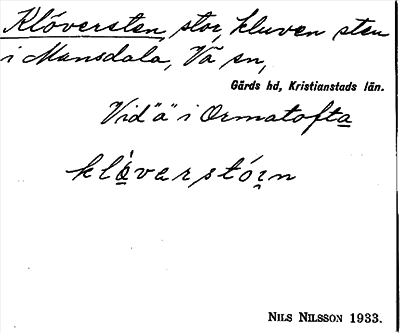 Klöversten, stor, kluven sten
i Mansdala, Vä sn,
Gärds hd, Kristianstads län.
Vid "ä" i Ormatofta
NILS NILSSON 1933.